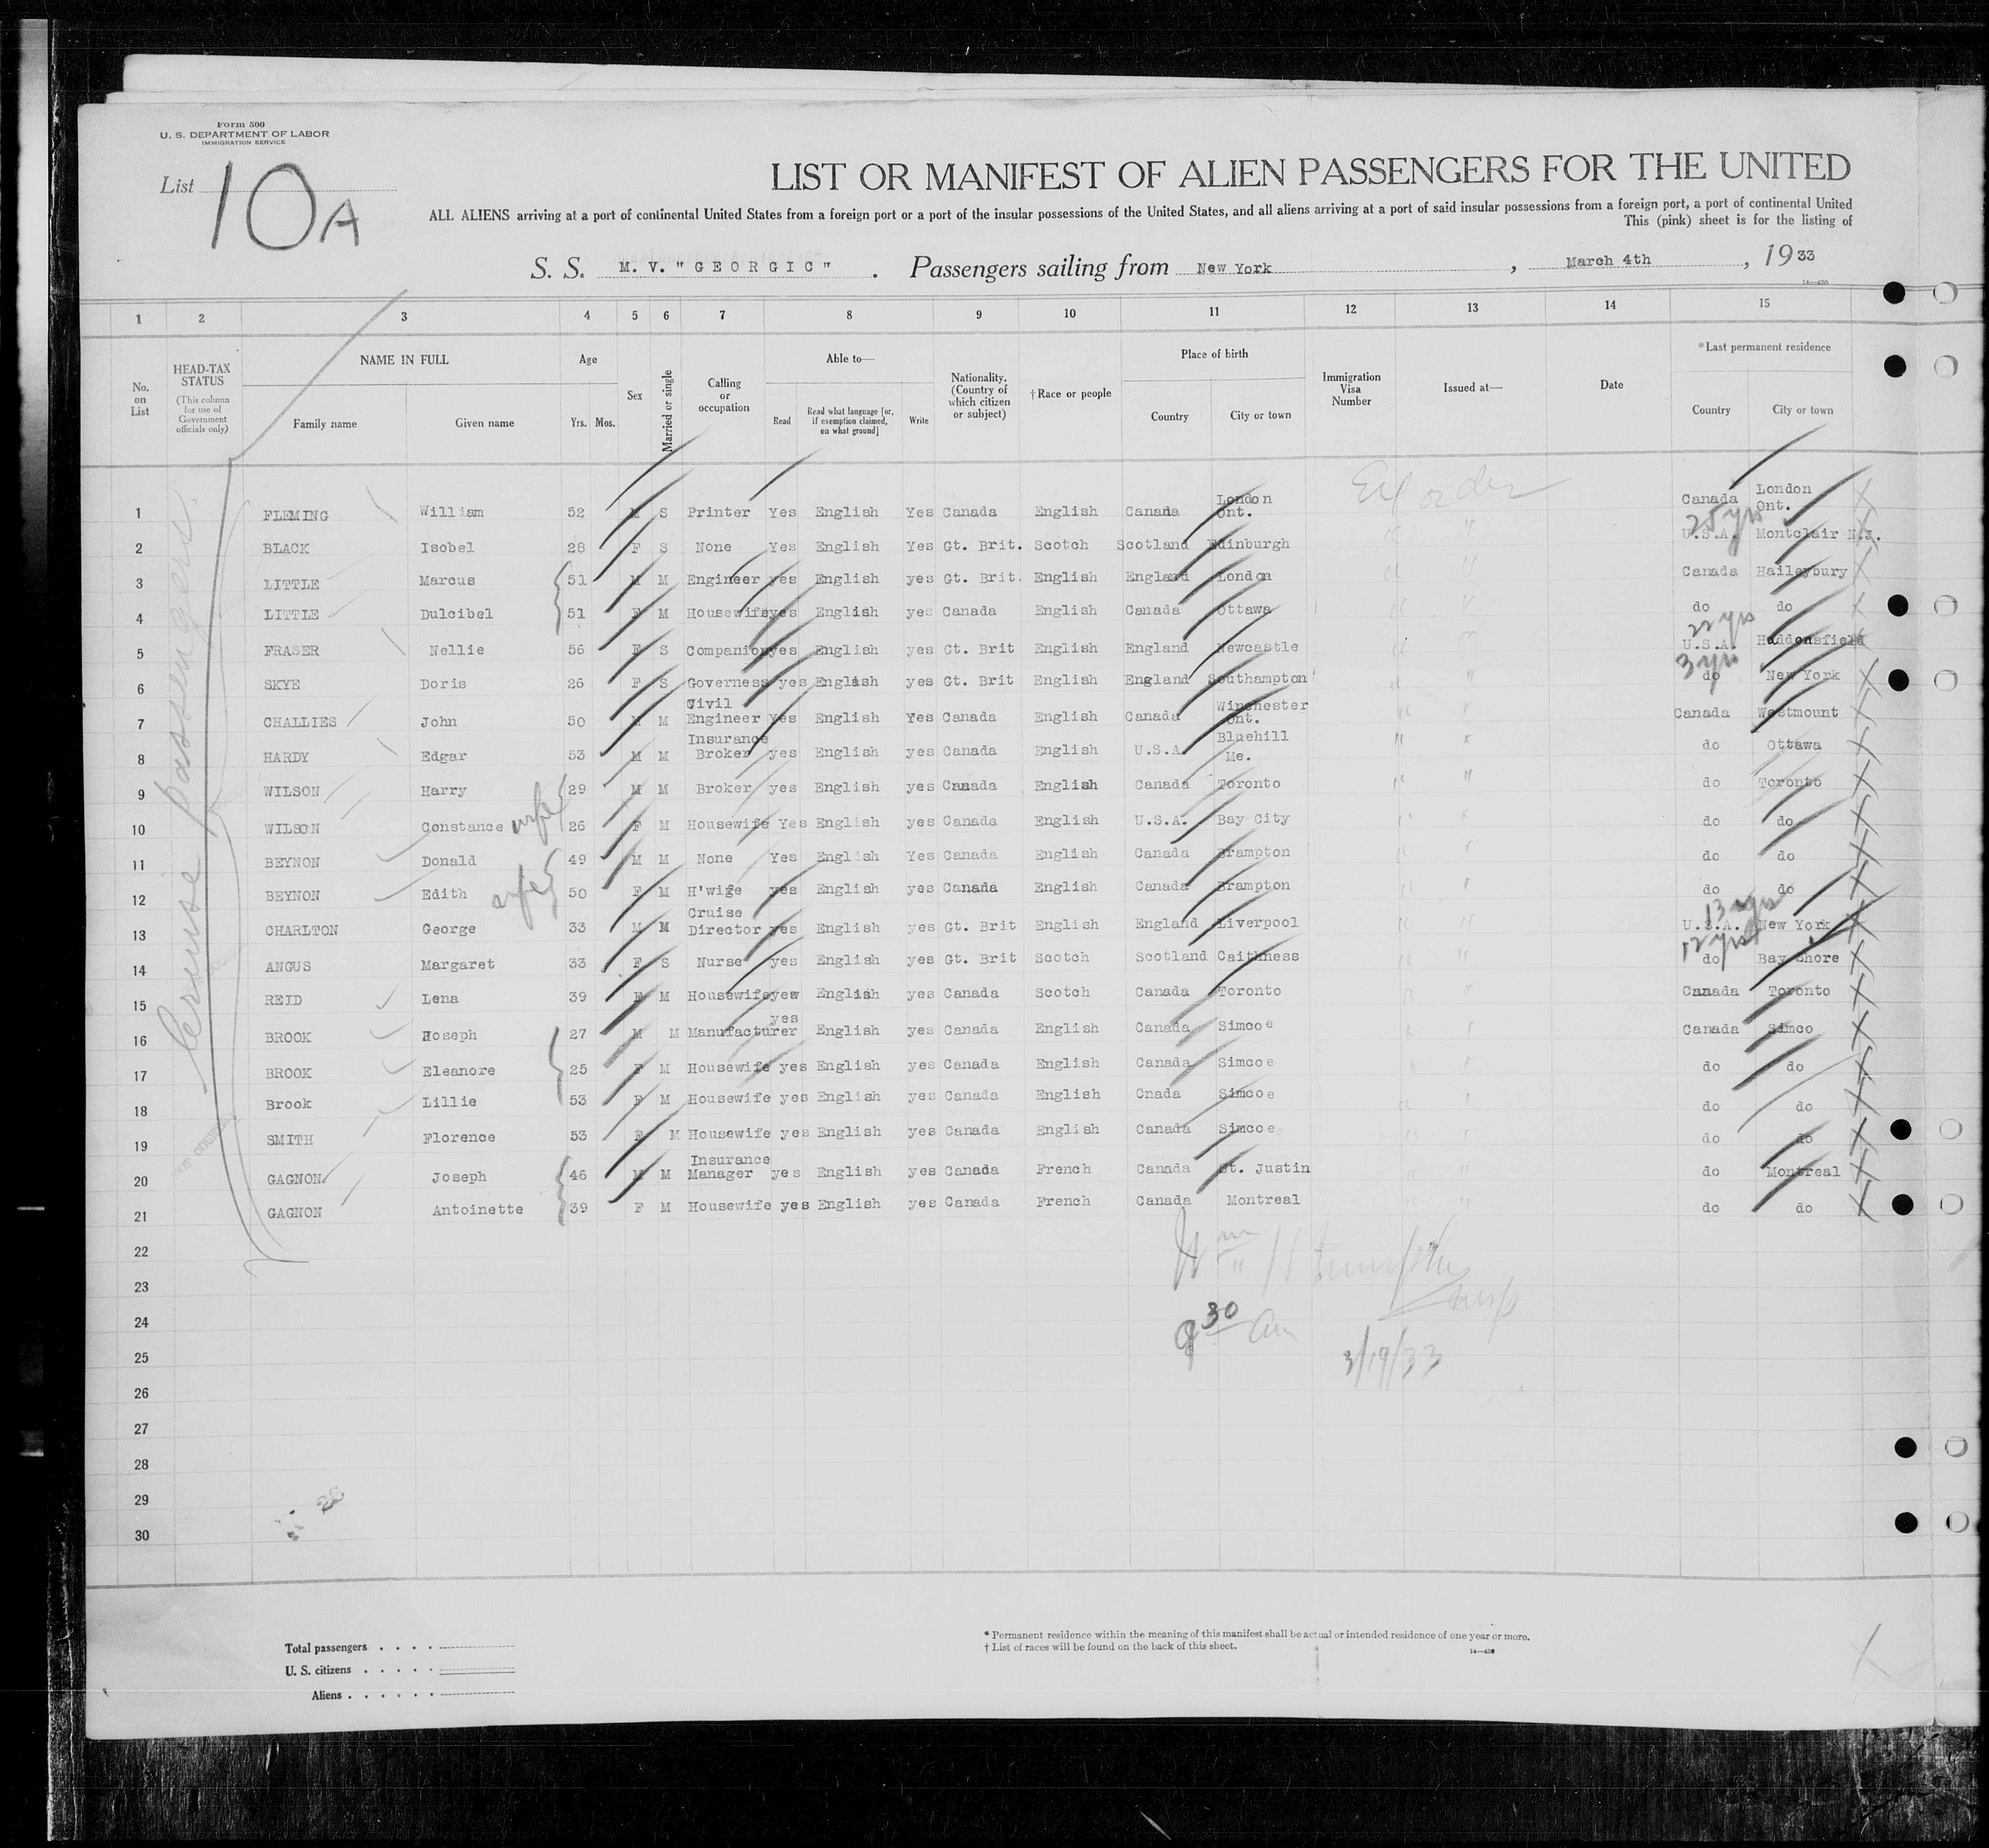 Form 500
U. S. DEPARTMENT OF LABOR
IMMIGRATION SERVICE
List 10A
LIST OR MANIFEST OF ALIEN PASSENGERS FOR THE UNITED
ALL ALIENS arriving at a port of continental United States from a foreign port or a port of the insular possessions of the United States, and all aliens arriving at a port of said insular possessions from a foreign port, a port of continental United
This (pink) sheet is for the listing of
S. S. M. V. "GEORGIC" . Passengers sailing from New York , March 4th , 1933
14—430
1 2 3 4 5 6 7 8 9 10 11 12 13 14 15
No. on List
HEAD-TAX STATUS (This column for use of Government officials only)
NAME IN FULL Family name Given name
Age Yrs. Mos.
Sex
Married or single
Calling or occupation
Able to— Read Read what language [or, if exemption claimed, on what ground] Write
Nationality. (Country of which citizen or subject)
†Race or people
Place of birth Country City or town
Immigration Visa Number
Issued at—
Date
*Last permanent residence Country City or town
Cruise passengers
1 FLEMING William 52 M S Printer Yes English Yes Canada English Canada London Ont. Ex order Canada London Ont.
25 yrs
2 BLACK Isobel 28 F S None Yes English Yes Gt. Brit. Scotch Scotland Edinburgh " " U.S.A. Montclair N.J.
3 LITTLE Marcus 51 M M Engineer yes English yes Gt. Brit. English England London " " Canada Haileybury
4 LITTLE Dulcibel 51 F M Housewife yes English yes Canada English Canada Ottawa " " do do
22 yrs
5 FRASER Nellie 56 F S Companion yes English yes Gt. Brit English England Newcastle " " U.S.A. Haddonsfield
3 yrs
6 SKYE Doris 26 F S Governess yes English yes Gt. Brit English England Southampton " " do New York
7 CHALLIES John 50 M M Civil Engineer Yes English Yes Canada English Canada Winchester Ont. " " Canada Westmount
8 HARDY Edgar 53 M M Insurance Broker yes English yes Canada English U.S.A. Bluehill Me. " " do Ottawa
9 WILSON Harry 29 M M Broker yes English yes Canada English Canada Toronto " " do Toronto
10 WILSON Constance wife 26 F M Housewife Yes English yes Canada English U.S.A. Bay City " " do do
11 BEYNON Donald 49 M M None Yes English Yes Canada English Canada Brampton " " do do
12 BEYNON Edith wife 50 F M H'wife yes English yes Canada English Canada Brampton " " do do
13 yrs
13 CHARLTON George 33 M M Cruise Director yes English yes Gt. Brit English England Liverpool " " U.S.A. New York
12 yrs
14 ANGUS Margaret 33 F S Nurse yes English yes Gt. Brit Scotch Scotland Caithness " " do Bay Shore
15 REID Lena 39 F M Housewife yes English yes Canada Scotch Canada Toronto " " Canada Toronto
16 BROOK Joseph 27 M M Manufacturer yes English yes Canada English Canada Simcoe " " Canada Simco
17 BROOK Eleanore 25 F M Housewife yes English yes Canada English Canada Simcoe " " do do
18 Brook Lillie 53 F M Housewife yes English yes Canada English Cnada Simcoe " " do do
19 SMITH Florence 53 F M Housewife yes English yes Canada English Canada Simcoe " " do do
20 GAGNON Joseph 46 M M Insurance Manager yes English yes Canada French Canada St. Justin " " do Montreal
21 GAGNON Antoinette 39 F M Housewife yes English yes Canada French Canada Montreal " " do do
22
23
24
9 30 am
25
3/19/33
26
27
28
29
30
Total passengers
U. S. citizens
Aliens
* Permanent residence within the meaning of this manifest shall be actual or intended residence of one year or more.
† List of races will be found on the back of this sheet.
14—430